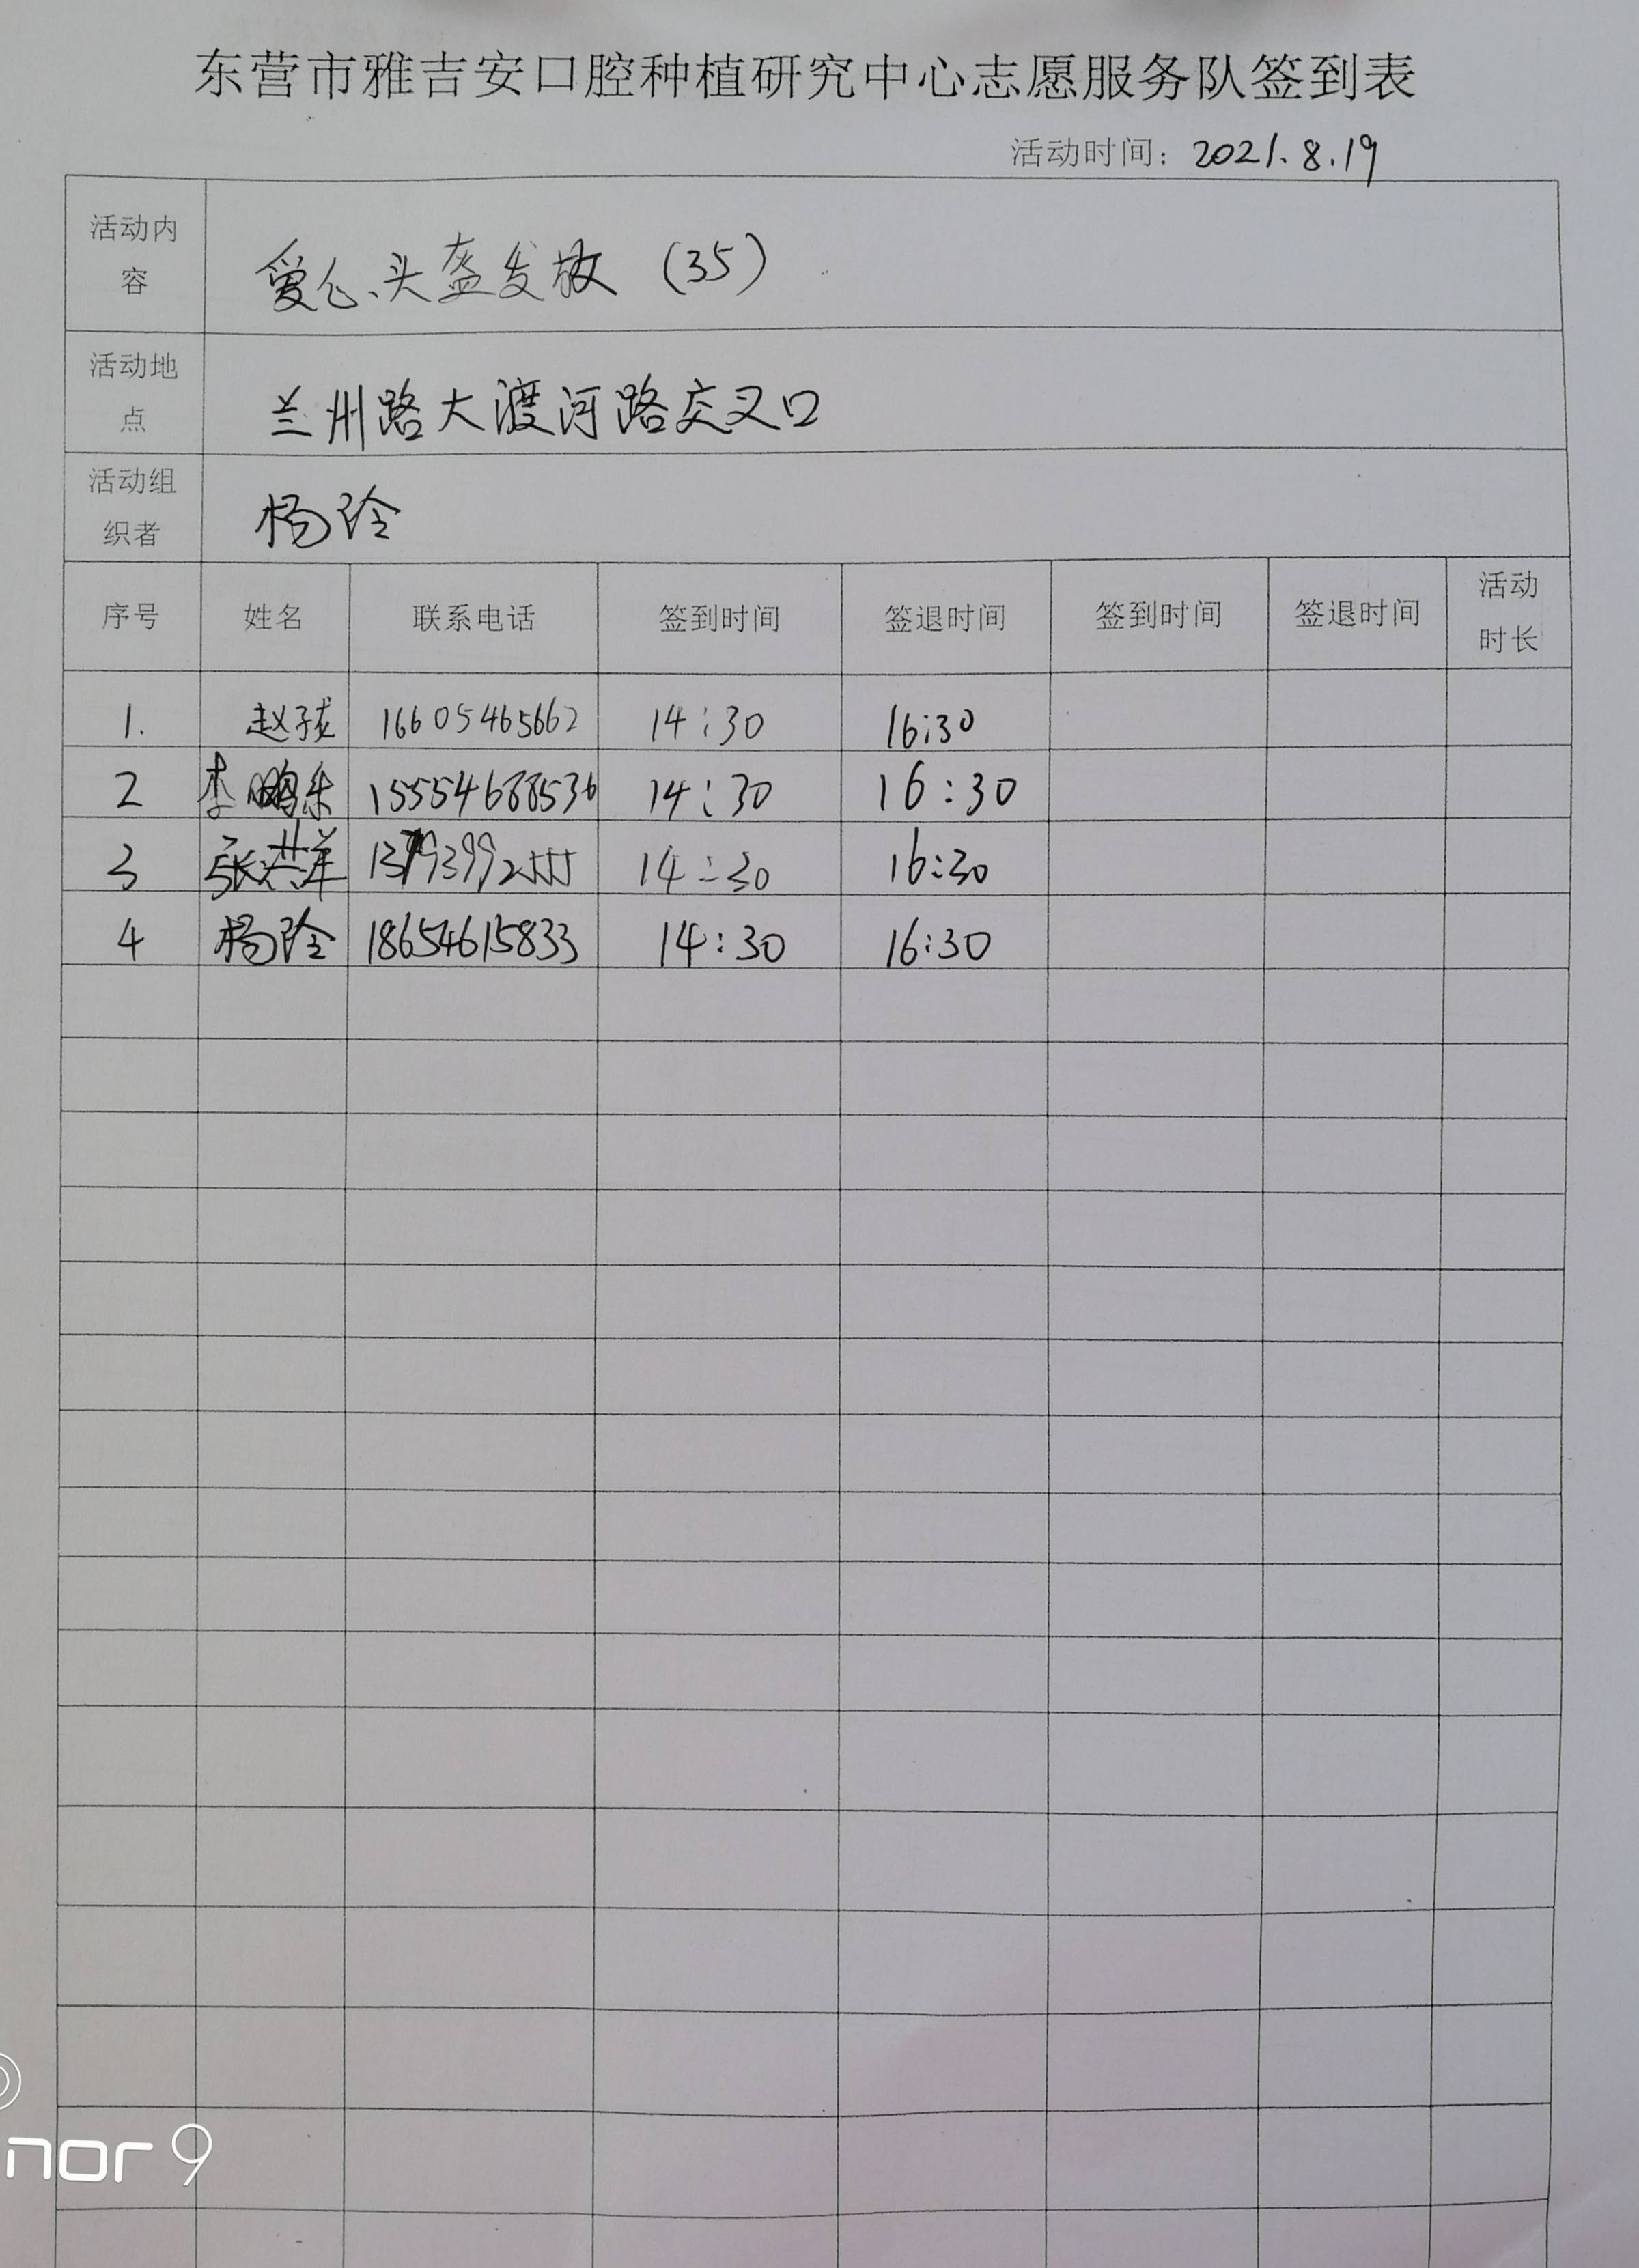 东营市雅吉安口腔种植研究中心志愿服务队签到表
活动时间：2021.8.19
活动内容 爱心头盔发放（35）
活动地点 兰州路大渡河路交叉口
活动组织者 杨玲
序号 姓名 联系电话 签到时间 签退时间 签到时间 签退时间 活动时长
1. 赵 16605465662 14:30 16:30
2 李鹏乐 15554688536 14:30 16:30
3 张洪洋 13793992555 14:30 16:30
4 杨玲 18654615833 14:30 16:30
nor 9